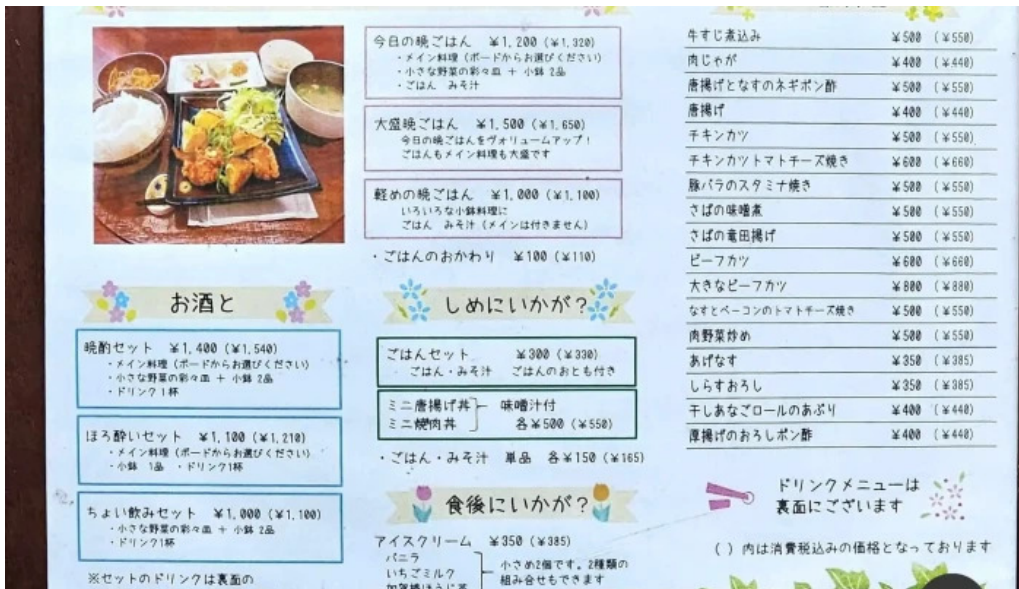 今日の晩ごはん ¥1,200 (¥1,320)
・メイン料理 (ボードからお選びください)
・小さな野菜の彩々皿 + 小鉢 2品
・ごはん みそ汁
大盛晩ごはん ¥1,500 (¥1,650)
今日の晩ごはんをヴォリュームアップ!
ごはんもメイン料理も大盛です
軽めの晩ごはん ¥1,000 (¥1,100)
いろいろな小鉢料理に
ごはん みそ汁 (メインは付きません)
・ごはんのおかわり ¥100 (¥110)
お酒と
晩酌セット ¥1,400 (¥1,540)
・メイン料理 (ボードからお選びください)
・小さな野菜の彩々皿 + 小鉢 2品
・ドリンク1杯
ほろ酔いセット ¥1,100 (¥1,210)
・メイン料理 (ボードからお選びください)
・小鉢 1品 ・ドリンク1杯
ちょい飲みセット ¥1,000 (¥1,100)
・小さな野菜の彩々皿 + 小鉢 2品
・ドリンク1杯
※セットのドリンクは裏面の
しめにいかが?
ごはんセット ¥300 (¥330)
ごはん・みそ汁 ごはんのおとも付き
ミニ唐揚げ丼 味噌汁付
ミニ焼肉丼 各¥500 (¥550)
・ごはん・みそ汁 単品 各¥150 (¥165)
食後にいかが?
アイスクリーム ¥350 (¥385)
バニラ
いちごミルク
小さめ2個です。2種類の
組み合せもできます
牛すじ煮込み ¥500 (¥550)
肉じゃが ¥400 (¥440)
唐揚げとなすのネギポン酢 ¥500 (¥550)
唐揚げ ¥400 (¥440)
チキンカツ ¥500 (¥550)
チキンカツトマトチーズ焼き ¥600 (¥660)
豚バラのスタミナ焼き ¥500 (¥550)
さばの味噌煮 ¥500 (¥550)
さばの竜田揚げ ¥500 (¥550)
ビーフカツ ¥600 (¥660)
大きなビーフカツ ¥800 (¥880)
なすとベーコンのトマトチーズ焼き ¥500 (¥550)
肉野菜炒め ¥500 (¥550)
あげなす ¥350 (¥385)
しらすおろし ¥350 (¥385)
干しあなごロールのあぶり ¥400 (¥440)
厚揚げのおろしポン酢 ¥400 (¥440)
ドリンクメニューは
裏面にございます
( ) 内は消費税込みの価格となっております